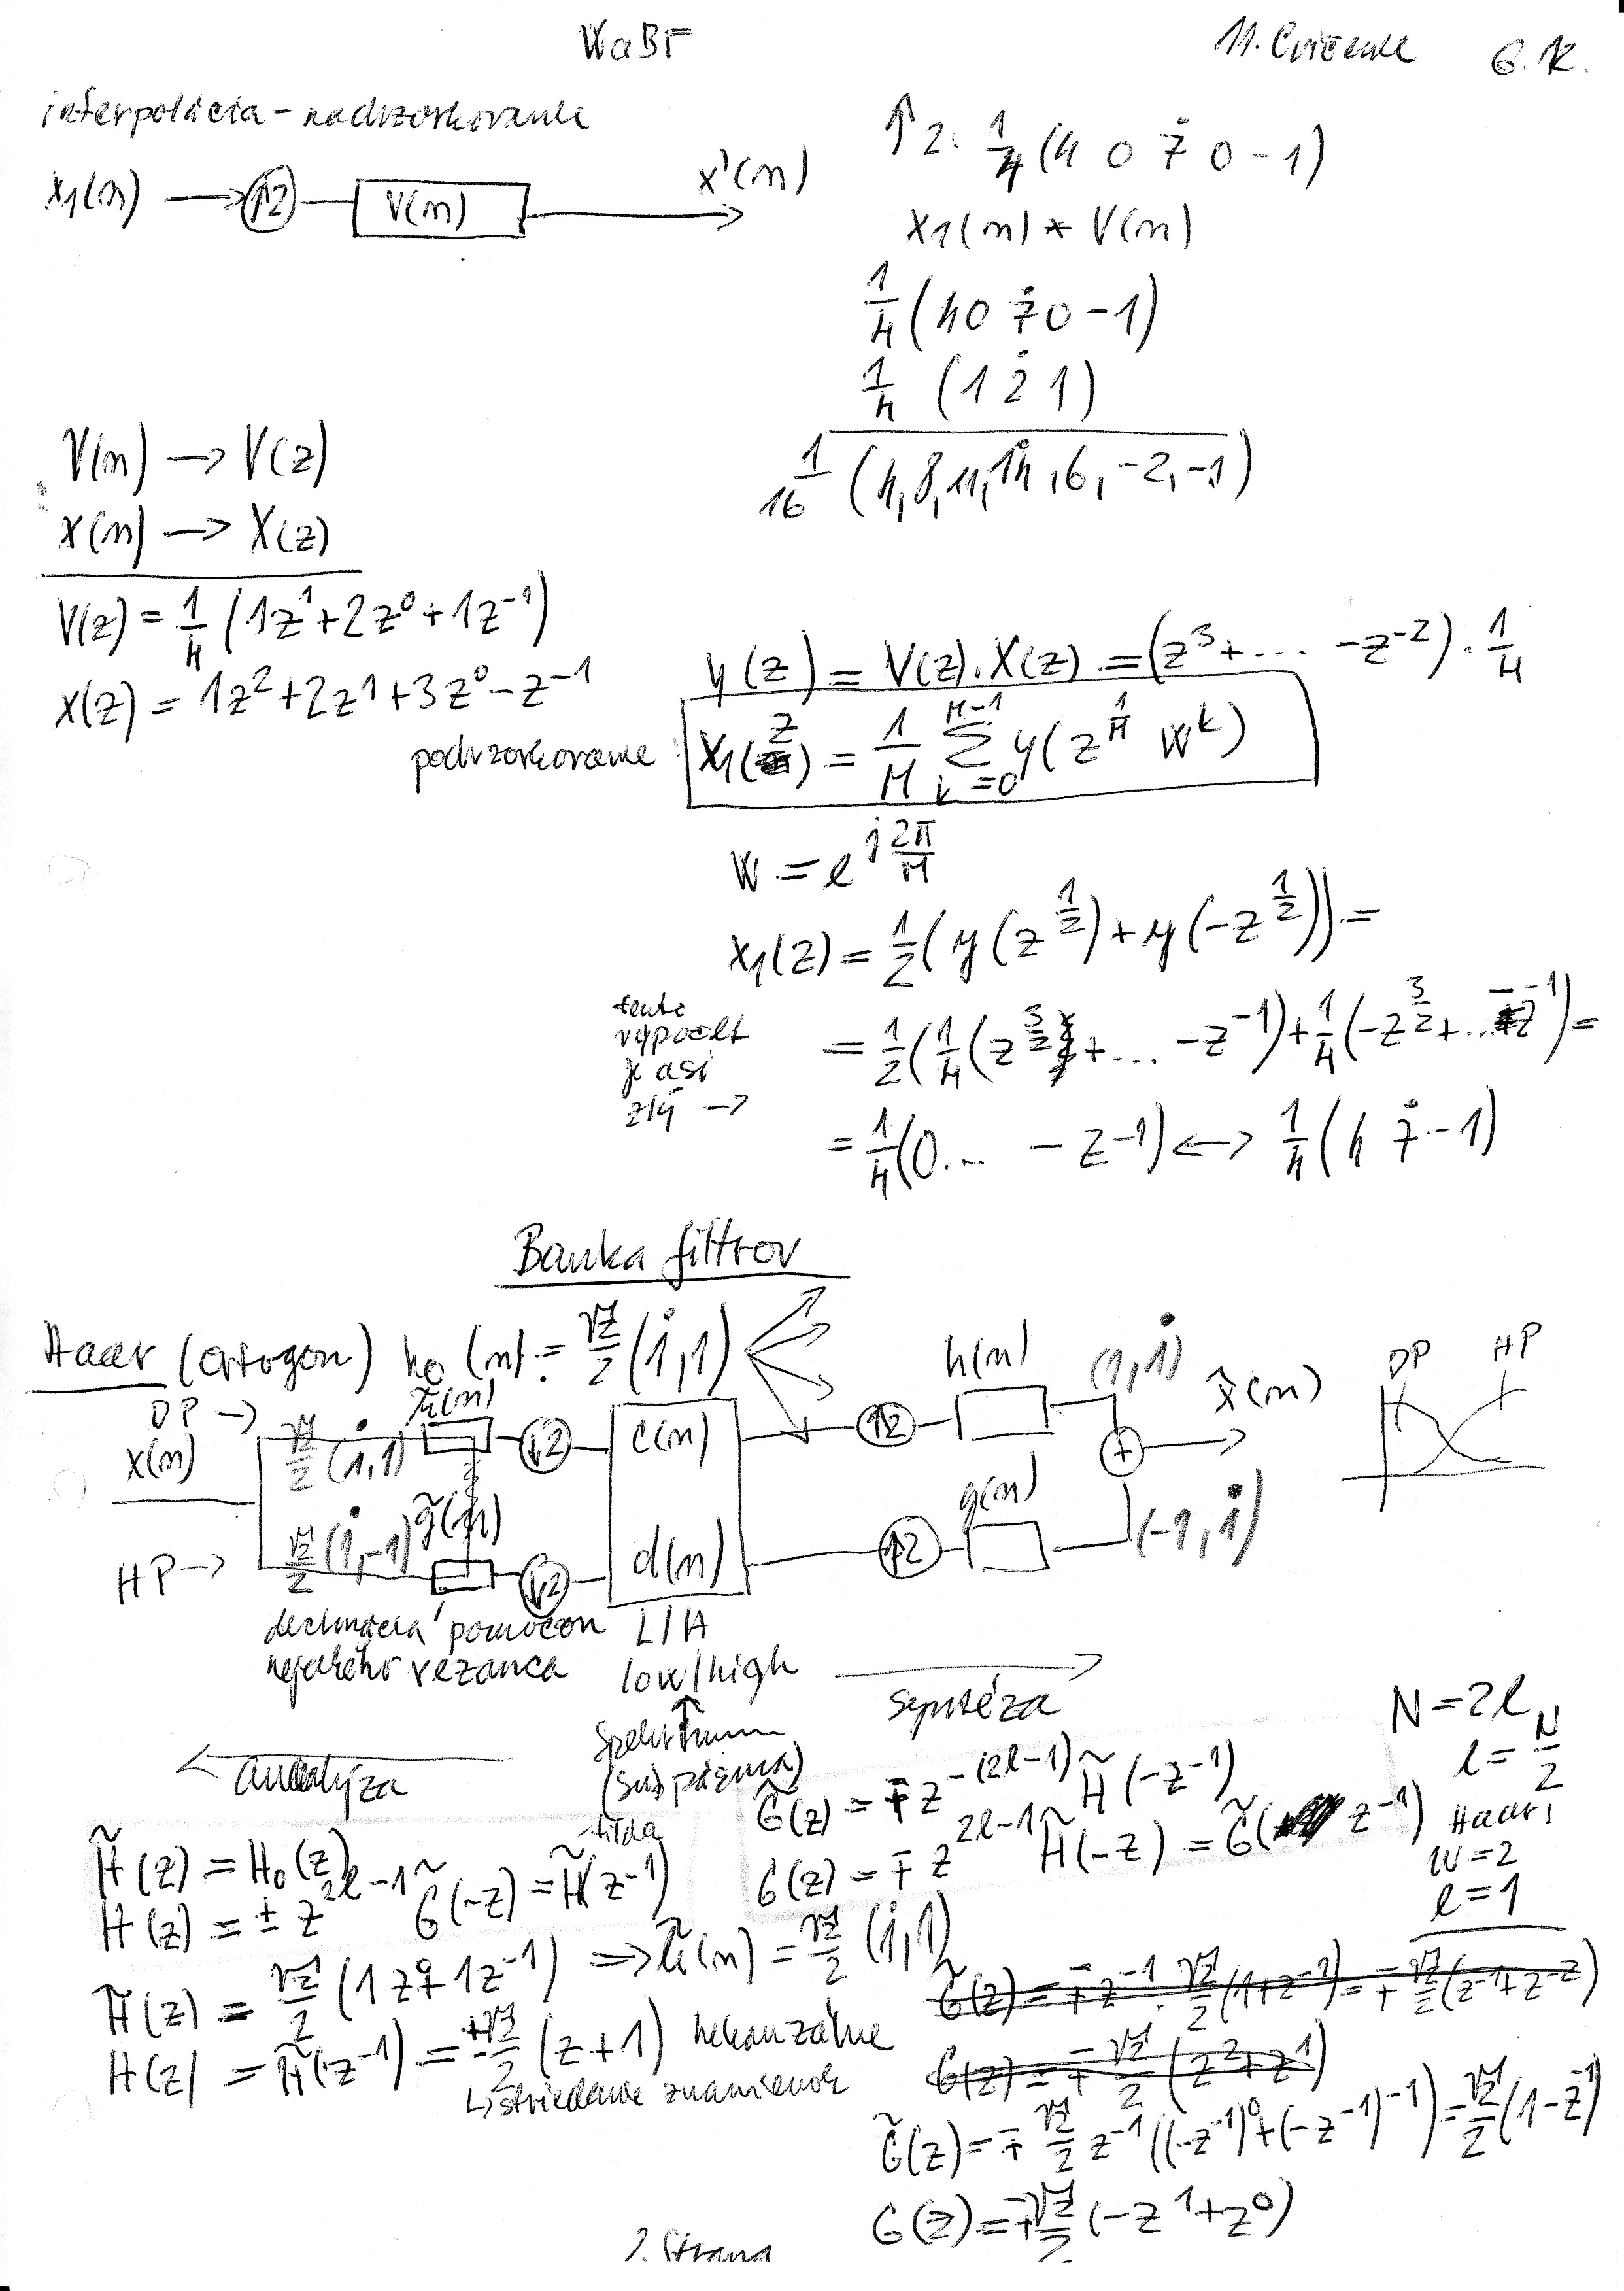 WaBF
11. Cvičenie 6.12.
interpolácia - nadvzorkovanie
x1(n) → ↑2 V(n) x'(n)
↑2: 1/4 (4 0 7 0 -1)
x1(n) * V(n)
1/4 (4 0 7 0 -1)
1/4 (1 2 1)
1/16 (4, 8, 11, 14, 6, -2, -1)
V(n) → V(z)
x(n) → X(z)
V(z) = 1/4 (1z^1 + 2z^0 + 1z^-1)
X(z) = 1z^2 + 2z^1 + 3z^0 - z^-1
y(z) = V(z).X(z) = (z^3 + ... - z^-2) . 1/4
podvzorkovanie: x1(z) = 1/M Σ_{k=0}^{M-1} y(z^{1/M} W^k)
W = e^{j 2π/M}
x1(z) = 1/2 (y(z^{1/2}) + y(-z^{1/2})) =
tento
výpočet
je asi
zlý →
= 1/2 (1/4 (z^{3/2} + ... - z^-1) + 1/4 (-z^{3/2} + ... - z^-1) =
= 1/4 (0... - z^-1) ↔ 1/4 (4 7 -1)
Banka filtrov
Haar (ortogon.) h0(n) = √2/2 (1,1)
DP → √2/2 (1,1) h̃(n) ↓2 c(n) ↑2 h(n) (1,1) x̃(n)
x(n) + DP HP
HP → √2/2 (1,-1) g̃(n) ↓2 d(n) ↑2 g(n) (-1,1)
decimácia pomocou L/H
nejakého vezanca low/high
syntéza
spektrum
analýza
N = 2l
l = N/2
Haar:
N=2
l=1
G̃(z) = ∓ z^-(2l-1) H̃(-z^-1)
G(z) = ∓ z^{2l-1} H̃(-z) = G̃(z^-1)
tilda
H̃(z) = H0(z)
H(z) = ± z^{2l-1} G̃(-z) = H̃(z^-1)
H̃(z) = √2/2 (1z^0 + 1z^-1) ⇒ h̃(n) = √2/2 (1,1)
H(z) = H̃(z^-1) = ± √2/2 (z+1) nekauzálne
↳ striedanie znamienok
G̃(z) = ∓ z^-1 . √2/2 (1+z^-1) = ∓ √2/2 (z^-1 + z^-2)
G(z) = ∓ √2/2 (z^2 + z^1)
G̃(z) = ∓ √2/2 z^-1 ((-z^-1)^0 + (-z^-1)^-1) = √2/2 (1-z^-1)
G(z) = ∓ √2/2 (-z^1 + z^0)
Strana